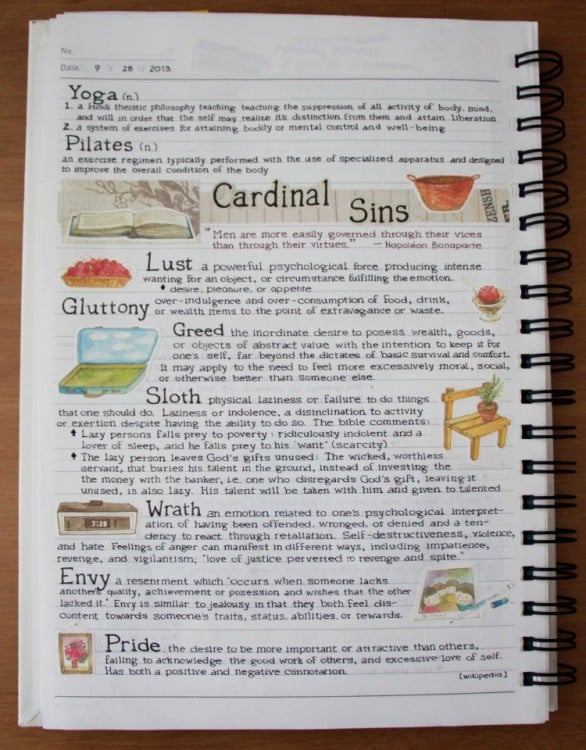 No.
Date. 9 / 28 / 2013
Yoga (n.)
1. a Hindi theistic philosophy teaching teaching the suppression of all activity of body, mind,
and will in order that the self may realize its distinction from them and attain liberation
2. a system of exercises for attaining bodily or mental control and well-being
Pilates (n.)
an exercise regimen typically performed with the use of specialized apparatus and designed
to improve the overall condition of the body
Cardinal
Sins
ZENSH
"Men are more easily governed through their vices
than through their virtues." — Napoléon Bonaparte
Lust a powerful psychological force producing intense
wanting for an object, or circumstance fulfilling the emotion.
desire, pleasure, or appetite
Gluttony over-indulgence and over-consumption of food, drink,
or wealth items to the point of extravagance or waste.
Greed the inordinate desire to posess wealth, goods,
or objects of abstract value with the intention to keep it for
one's self, far beyond the dictates of basic survival and comfort.
It may apply to the need to feel more excessively moral, social,
or otherwise better than someone else.
Sloth physical laziness or failure to do things
that one should do. Laziness or indolence, a disinclination to activity
or exertion despite having the ability to do so. The bible comments:
Lazy persons falls prey to poverty : ridiculously indolent and a
lover of sleep, and he falls prey to his "want" (scarcity)
The lazy person leaves God's gifts unused: The wicked, worthless
servant, that buries his talent in the ground, instead of investing the
the money with the banker, i.e. one who disregards God's gift, leaving it
unused, is also lazy. His talent will be taken with him and given to talented
7:20
Wrath an emotion related to one's psychological interpret-
ation of having been offended, wronged, or denied and a ten-
dency to react through retaliation. Self-destructiveness, violence,
and hate. Feelings of anger can manifest in different ways, including impatience,
revenge, and vigilantism; "love of justice perverted to revenge and spite."
Envy a resentment which "occurs when someone lacks
another's quality, achievement or posession and wishes that the other
lacked it." Envy is similar to jealousy in that they both feel dis-
content towards someone's traits, status, abilities, or rewards.
Pride the desire to be more important or attractive than others,
failing to acknowledge the good work of others, and excessive love of self.
Has both a positive and negative connotation.
[wikipedia]